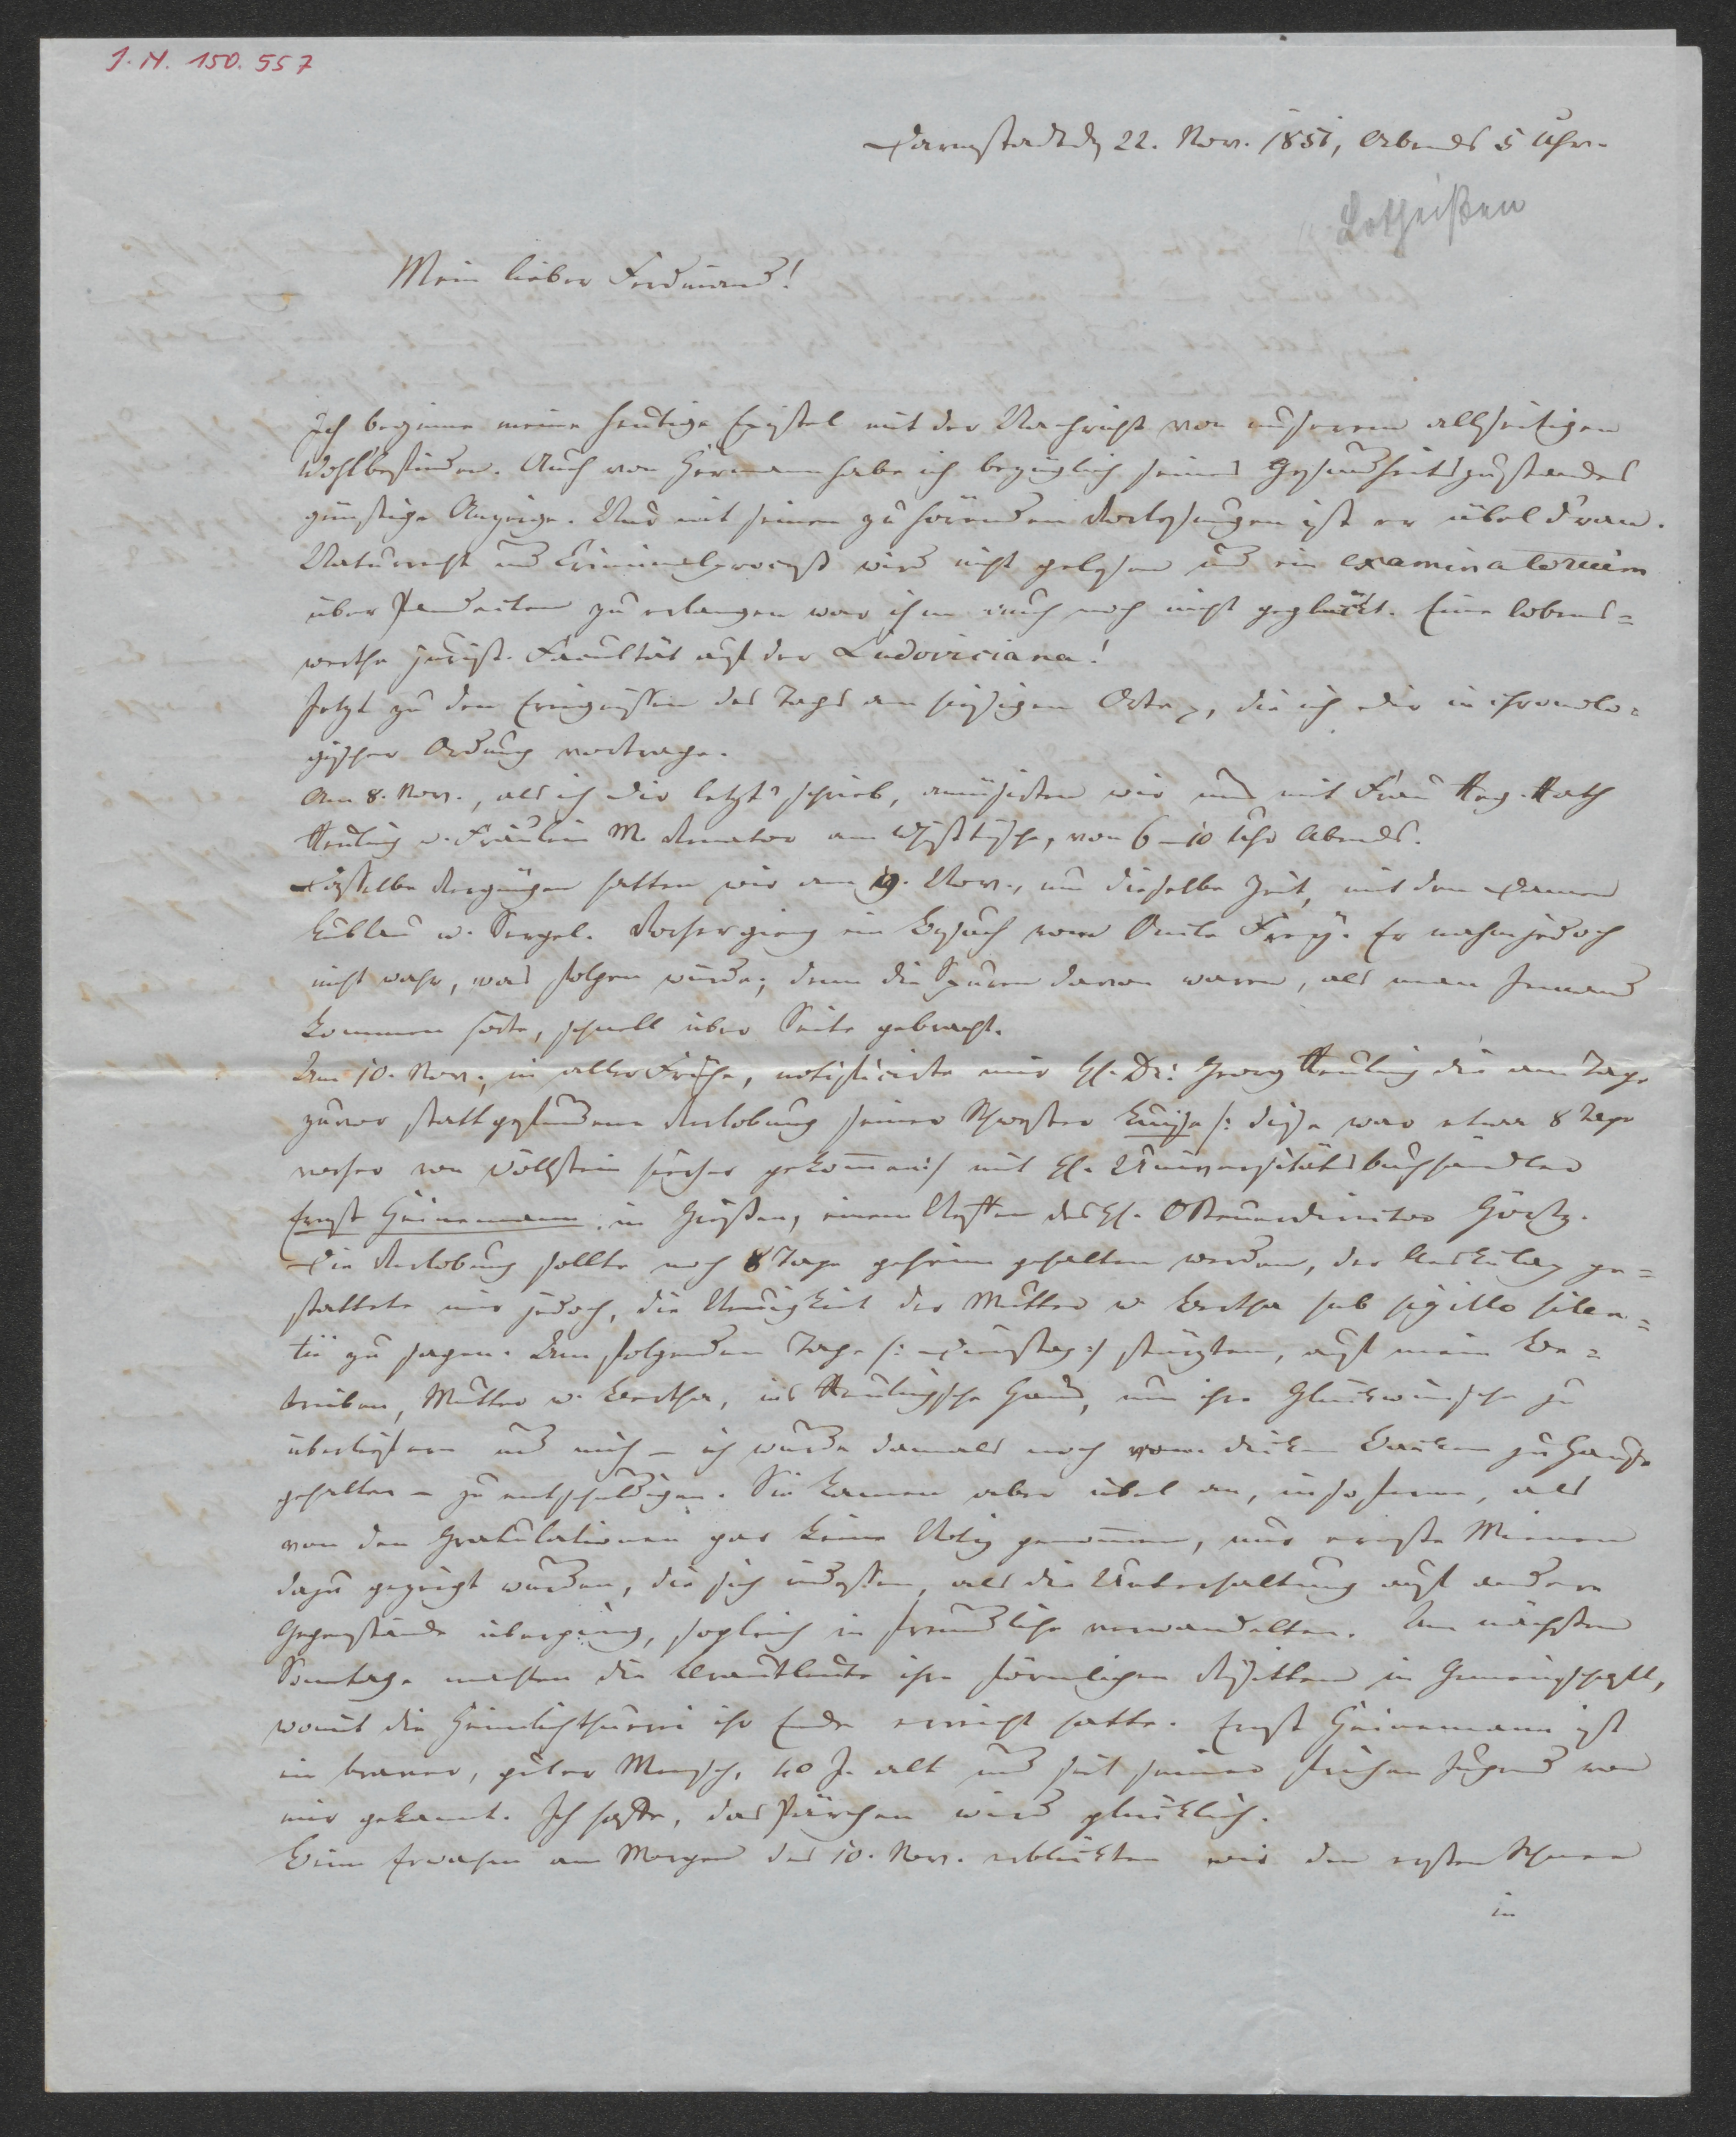 J. N. 150.557
Darmstadt d. 22. Nov. 1851, Abends 5 Uhr.
Lotheißen
Mein lieber Ferdinand!
Ich beginne meine heutige Epistel mit der Nachricht von unserem allseitigen
Wohlbefinden. Auch von Hermann habe ich bezüglich seines Gesundheitszustandes
günstige Anzeige. Nur mit seinen zu hörenden Vorlesungen ist er übel dran.
Naturrecht und Criminalproceß wird nicht gelesen und ein examinatorium
über Pandecten zu erlangen war ihm auch noch nicht geglückt. Eine lobens=
werthe jurist. Facultät auf der Ludoviciana!
Jetzt zu den Ereignissen des Tags am hiesigen Orte, die ich dir in chronolo=
gischer Ordnung vortrage.
Am 8. Nov., als ich dir letzt schrieb, amüsirten wir uns mit Frau Reg. Rath
Reuling u. Fräulein M. am Whisttische, von 6–10 Uhr Abends.
Dasselbe Vergnügen hatten wir am 9. Nov., um dieselbe Zeit, mit den Damen
u. Vorher ging ein Besuch vom Onkle Frey. Er nahm jedoch
nicht wahr, was folgen würde; denn die Spuren davon waren, als man Jemand
kommen hörte, schnell über Seite gebracht.
Am 10. Nov., in aller Frühe, notificirte mir H. Dr. Georg Reuling die am Tage
zuvor stattgefundene Verlobung seiner Schwester Luise /: diese war etwa 8 Tage
vorher von Wöllstein hierher gekommen :/ mit H. Universitätsbuchhändler
Ernst Heinemann in Gießen, einem Neffen des H.
Die Verlobung sollte noch 8 Tage geheim gehalten werden, der ge=
stattete mir jedoch, die Neuigkeit der Mutter u. Bertha sub sigillo silen=
tii zu sagen. Am folgenden Tage /: Dienstag :/ stürzten, auf mein Be=
treiben, Mutter u. Bertha, ins Reulingsche Haus, um ihre Glückwünsche zu
überliefern und mich – ich wurde damals noch vom dicken Backen zu Hause
gehalten – zu entschuldigen. Sie kamen aber übel an, insoferne, als
von den Gratulationen gar keine Notiz genommen, nur ernste Mienen
dazu gezeigt wurden, die sich indessen, als die Unterhaltung auf andere
Gegenstände überging, sogleich in freundliche verwandelten. Am nächsten
Sonntage machten die Brautleute ihre förmlichen Visitten in Gemeinschaft,
womit die Heimlichthuerei ihr Ende erreicht hatte. Ernst Heinemann ist
ein braver, guter Mensch, 40 J. alt und seit seiner frühen Jugend von
mir gekannt. Ich hoffe, das Pärchen wird glücklich.
Beim Erwachen am Morgen des 10. Nov. erblickten wir den ersten Schnee
in